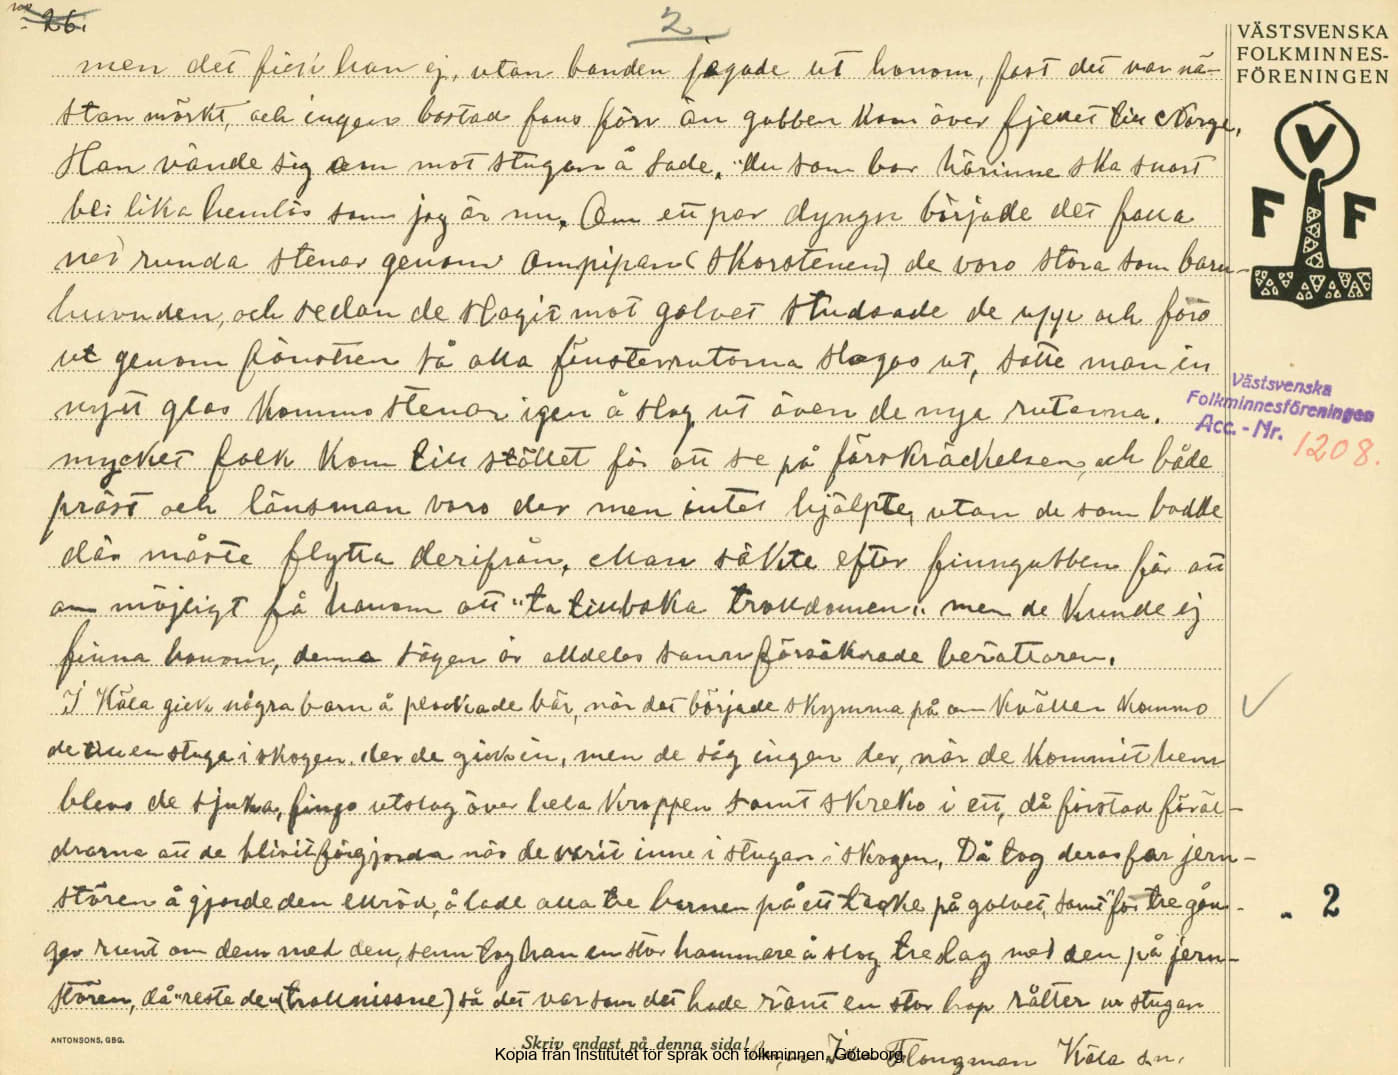 26.
2
VÄSTSVENSKA
FOLKMINNES-
FÖRENINGEN
V
F F
men det fick han ej, utan bonden jagade ut honom, fast det var nä-
stan mörkt, och ingen bostad fans förr än gubben kom över fjellet till Norge,
Han vände sig om mot stugan å sade, "du som bor härinne ska snart
bli lika hemlös som jag är nu, Om ett par dyngn började det falla
ned runda stenar genom ompipan (skorstenen) de voro stora som barn-
huvuden, och sedan de slagit mot golvet studsade de upp och foro
ut genom fönstren så alla fensterrutorna slogos ut, satte man in
nytt glas kommo stenar igen å slog ut även de nya rutorna.
mycket folk kom till stället för att se på förskräckelsen, och både
präst och länsman voro der men intet hjälpte, utan de som bodde
där måste flytta derifrån, Man sökte efter finngubben för att
om möjligt få honom att "ta tillbaka trolldomen", men de kunde ej
finna honom, denna sägen är alldeles sann försäkrade berättaren.
I Köla gick några barn å plockade bär, när det började skymma på om kvällen kommo
de till en stuga i skogen, der de gick in, men de såg ingen der, när de kommit hem
blevo de sjuka, fingo utslag över hela kroppen samt skreko i ett, då förstod föräl-
drarna att de blivit förgjorda när de varit inne i stugan i skogen, Då tog deras far jern-
stören å gjorde den ellröd, å lade alla tre barnen på ett täcke på golvet, samt for tre gån-
ger runt om dem med den, senn tog han en stor hammare å slog tre slag med den på jern-
stören, då "reste de" (trollnissne) så det var som det hade ränt en stor hop råtter ur stugan
Västsvenska
Folkminnesföreningen
Acc. - Nr. 1208.
2
ANTONSONS, GBG.
Skriv endast på denna sida!
Kopia från Institutet för språk och folkminnen, Göteborg
Flongman Köla sn.